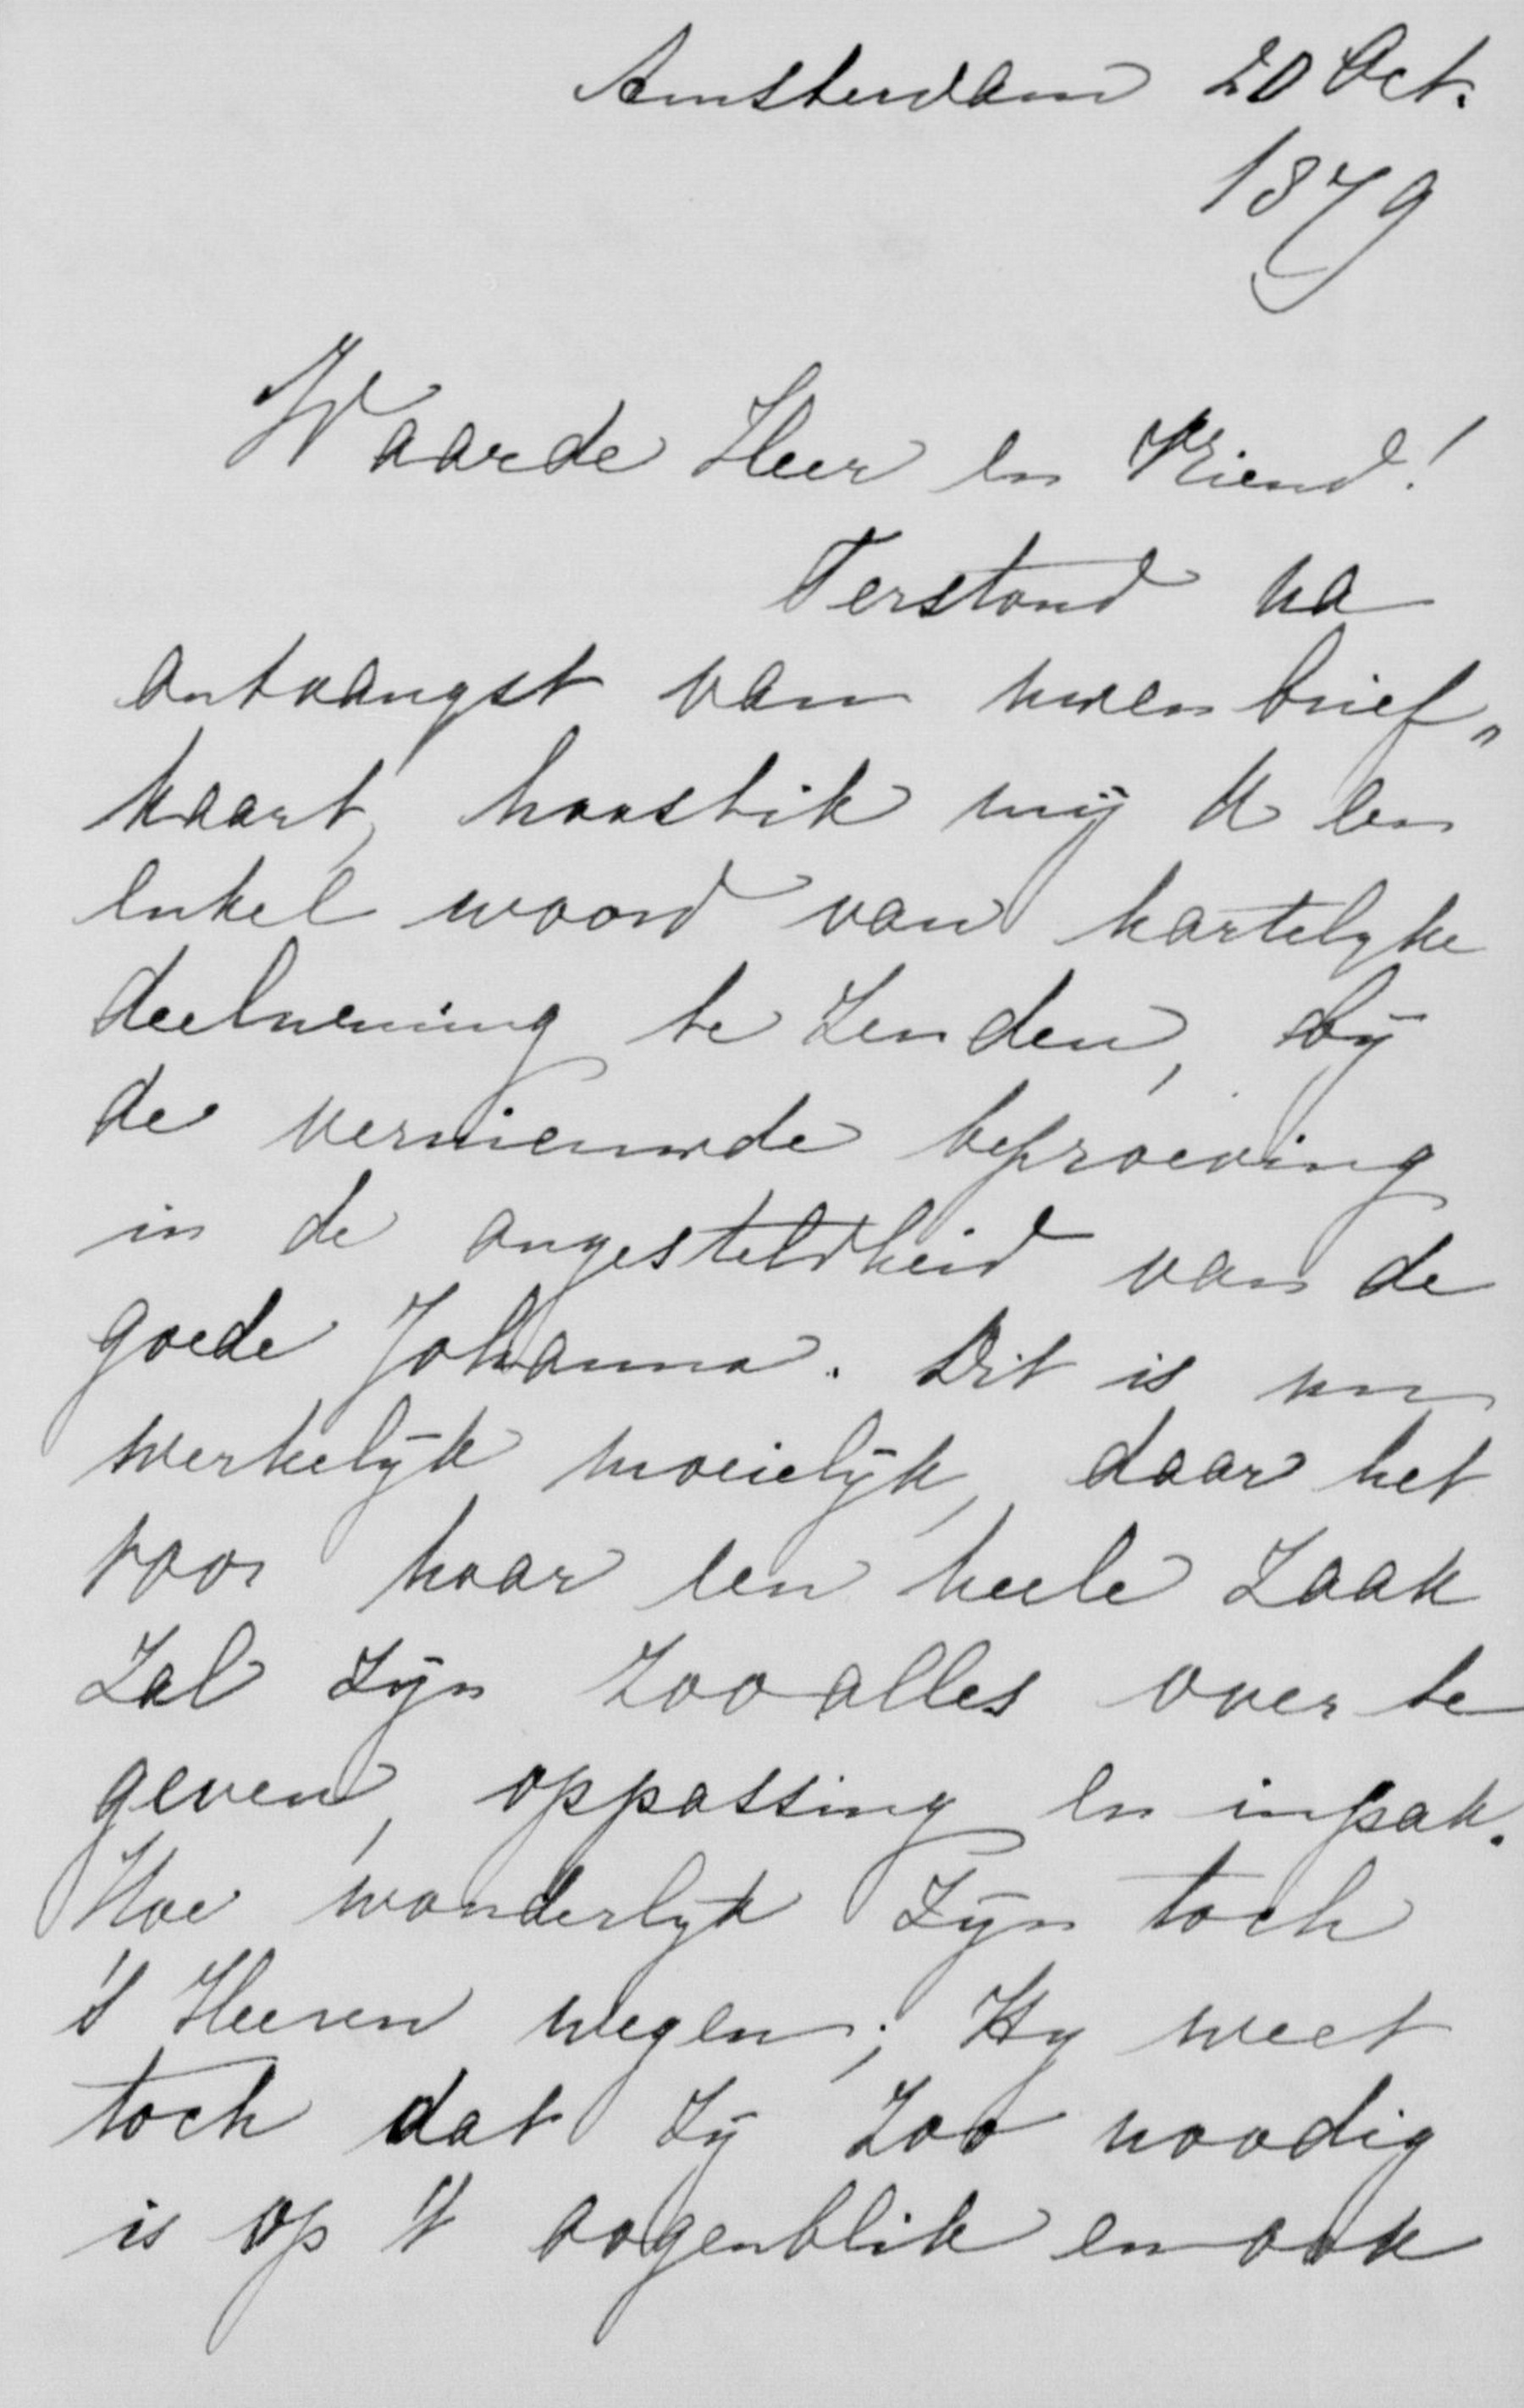 Amsterdam 20 Oct.
1879
Waarde Heer en Vriend!
Terstond na
ontvangst van uwen brief„
kaart, haast ik mij U een
enkel woord van hartelyke
deelneming te zenden, bÿ
de vernieuwde beproeving
in de ongesteldheid van de
goede Johanna. Dit is nu
werkelÿk moeielÿk, daar het
voor haar een heele zaak
zal zÿn zoo alles over te
geven, oppassing en inpak.
Hoe wonderlyk zÿn toch
's Heeren wegen; Hy weet
toch dat zÿ zoo noodig
is op 't oogenblik en ook